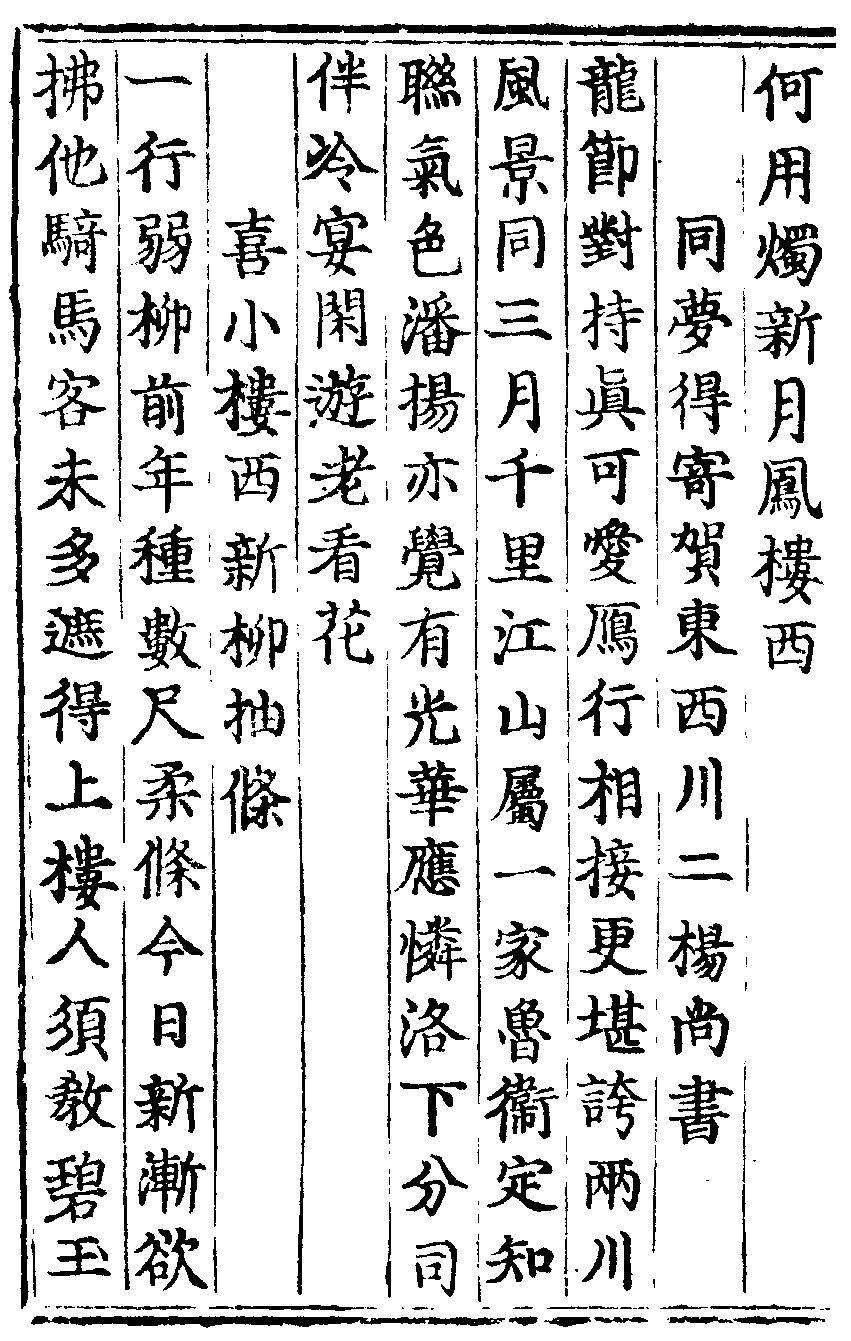 何用燭新月鳳樓西
同夢得寄賀東西川二楊尚書
龍節對持眞可愛鴈行相接更堪誇兩川
風景同三月千里江山屬一家魯衞定知
聯氣色潘揚亦覺有光華應憐洛下分司
伴冷宴閑遊老看花
喜小樓西新柳抽條
一行弱柳前年種數尺柔條今日新漸欲
拂他騎馬客未多遮得上樓人須敎碧玉